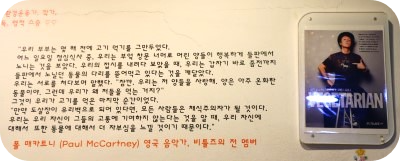 "우리 부부는 몇 해 전에 고기 먹기를 그만두었다.
어느 일요일 점심식사 중, 우리는 부엌 창문 너머로 어린 양들이 행복하게 들판에서
노니는 것을 보았다. 우리의 접시를 내려다 보았을 때, 우리는 갑자기 바로 좀전까지
들판에서 노닐던 동물의 다리를 뜯어먹고 있다는 것을 깨달았다.
우리는 서로를 쳐다보며 말했다. "잠깐, 우리는 저 양들을 사랑해, 양은 아주 온화한
동물이야. 그런데 우리가 왜 저들을 먹는 거지?"
그것이 우리가 고기를 먹은 마지막 순간이었다.
"만약 도살장이 유리벽으로 되어 있다면, 모든 사람들은 채식주의자가 될 것이다.
우리는 우리 자신이 그들의 고통에 기여하지 않는다는 것을 알 때, 우리 자신에
대해서 또한 동물에 대해서 더 자부심을 느낄 것이기 때문이다."
폴 매카트니 (Paul McCartney) 영국 음악가, 비틀즈의 전 멤버
VEGETARIAN